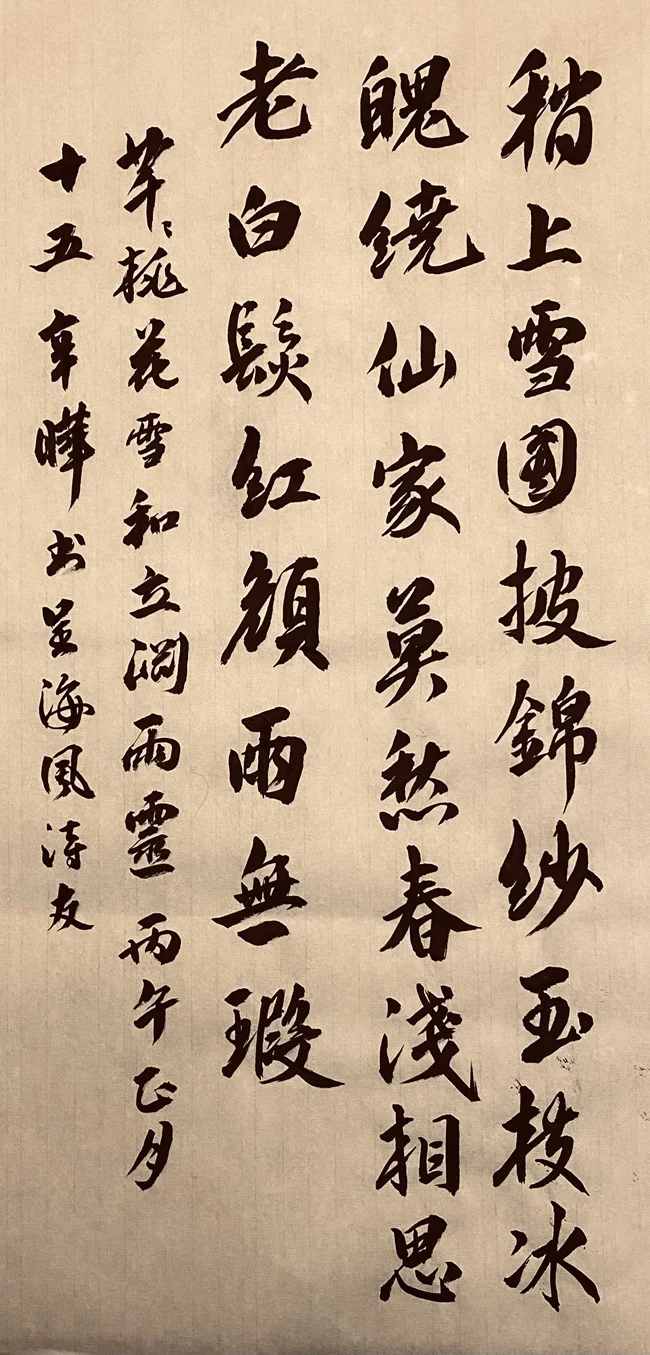 稍上雪團披錦紗玉枝冰
魄繞仙家莫愁春淺相思
老白鬢紅顏兩無瑕
芈〻桃花雪和立澗雨靈 丙午正月
十五辛曄书呈海風詩友